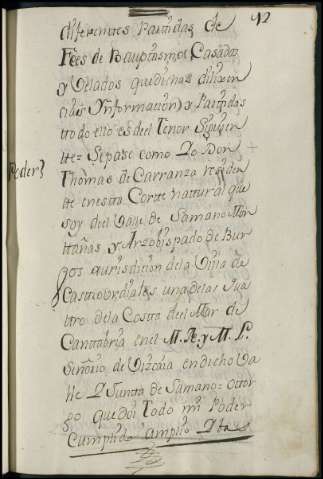 12
diferentes Partidas de
Fees de Bauptismos Casados
y Velados que dichas dilixen
cias Ynformacion y Partidas
todo ello es del Tenor Siguien
te = Sepase como Yo Don
Poder
Thomas de Carranza residen
te en esta Corte natural que
soy del Valle de Samano Mon
tañas y Arzobispado de Bur
gos Jurisdicion de la Villa de
Castrourdiales una de las Qua
tro de la Costa del Mar de
Cantabria en el M. N. y M. L.
Señorio de Vizcaia en dicho Va
lle Y Junta de Samano = otor
go que doi Todo mi Poder
Cumplido amplio